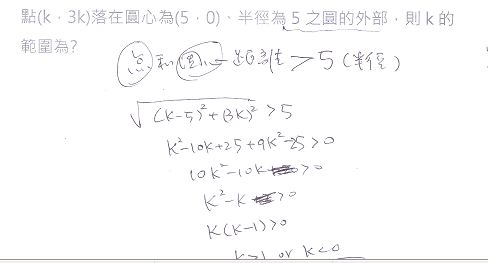 點(k,3k)落在圓心為(5,0)、半徑為 5 之圓的外部,則 k 的
範圍為?
点和圓心距離 > 5 (半徑)
√(k-5)²+(3k)² > 5
k²-10k+25+9k²-25>0
10k²-10k>0
k²-k>0
k(k-1)>0
k>1 or k<0